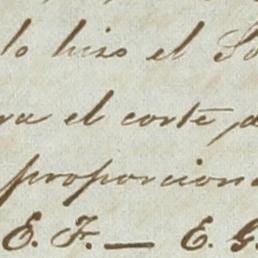 lo hizo el
el corte,
proporcion
E. F. — E. G.